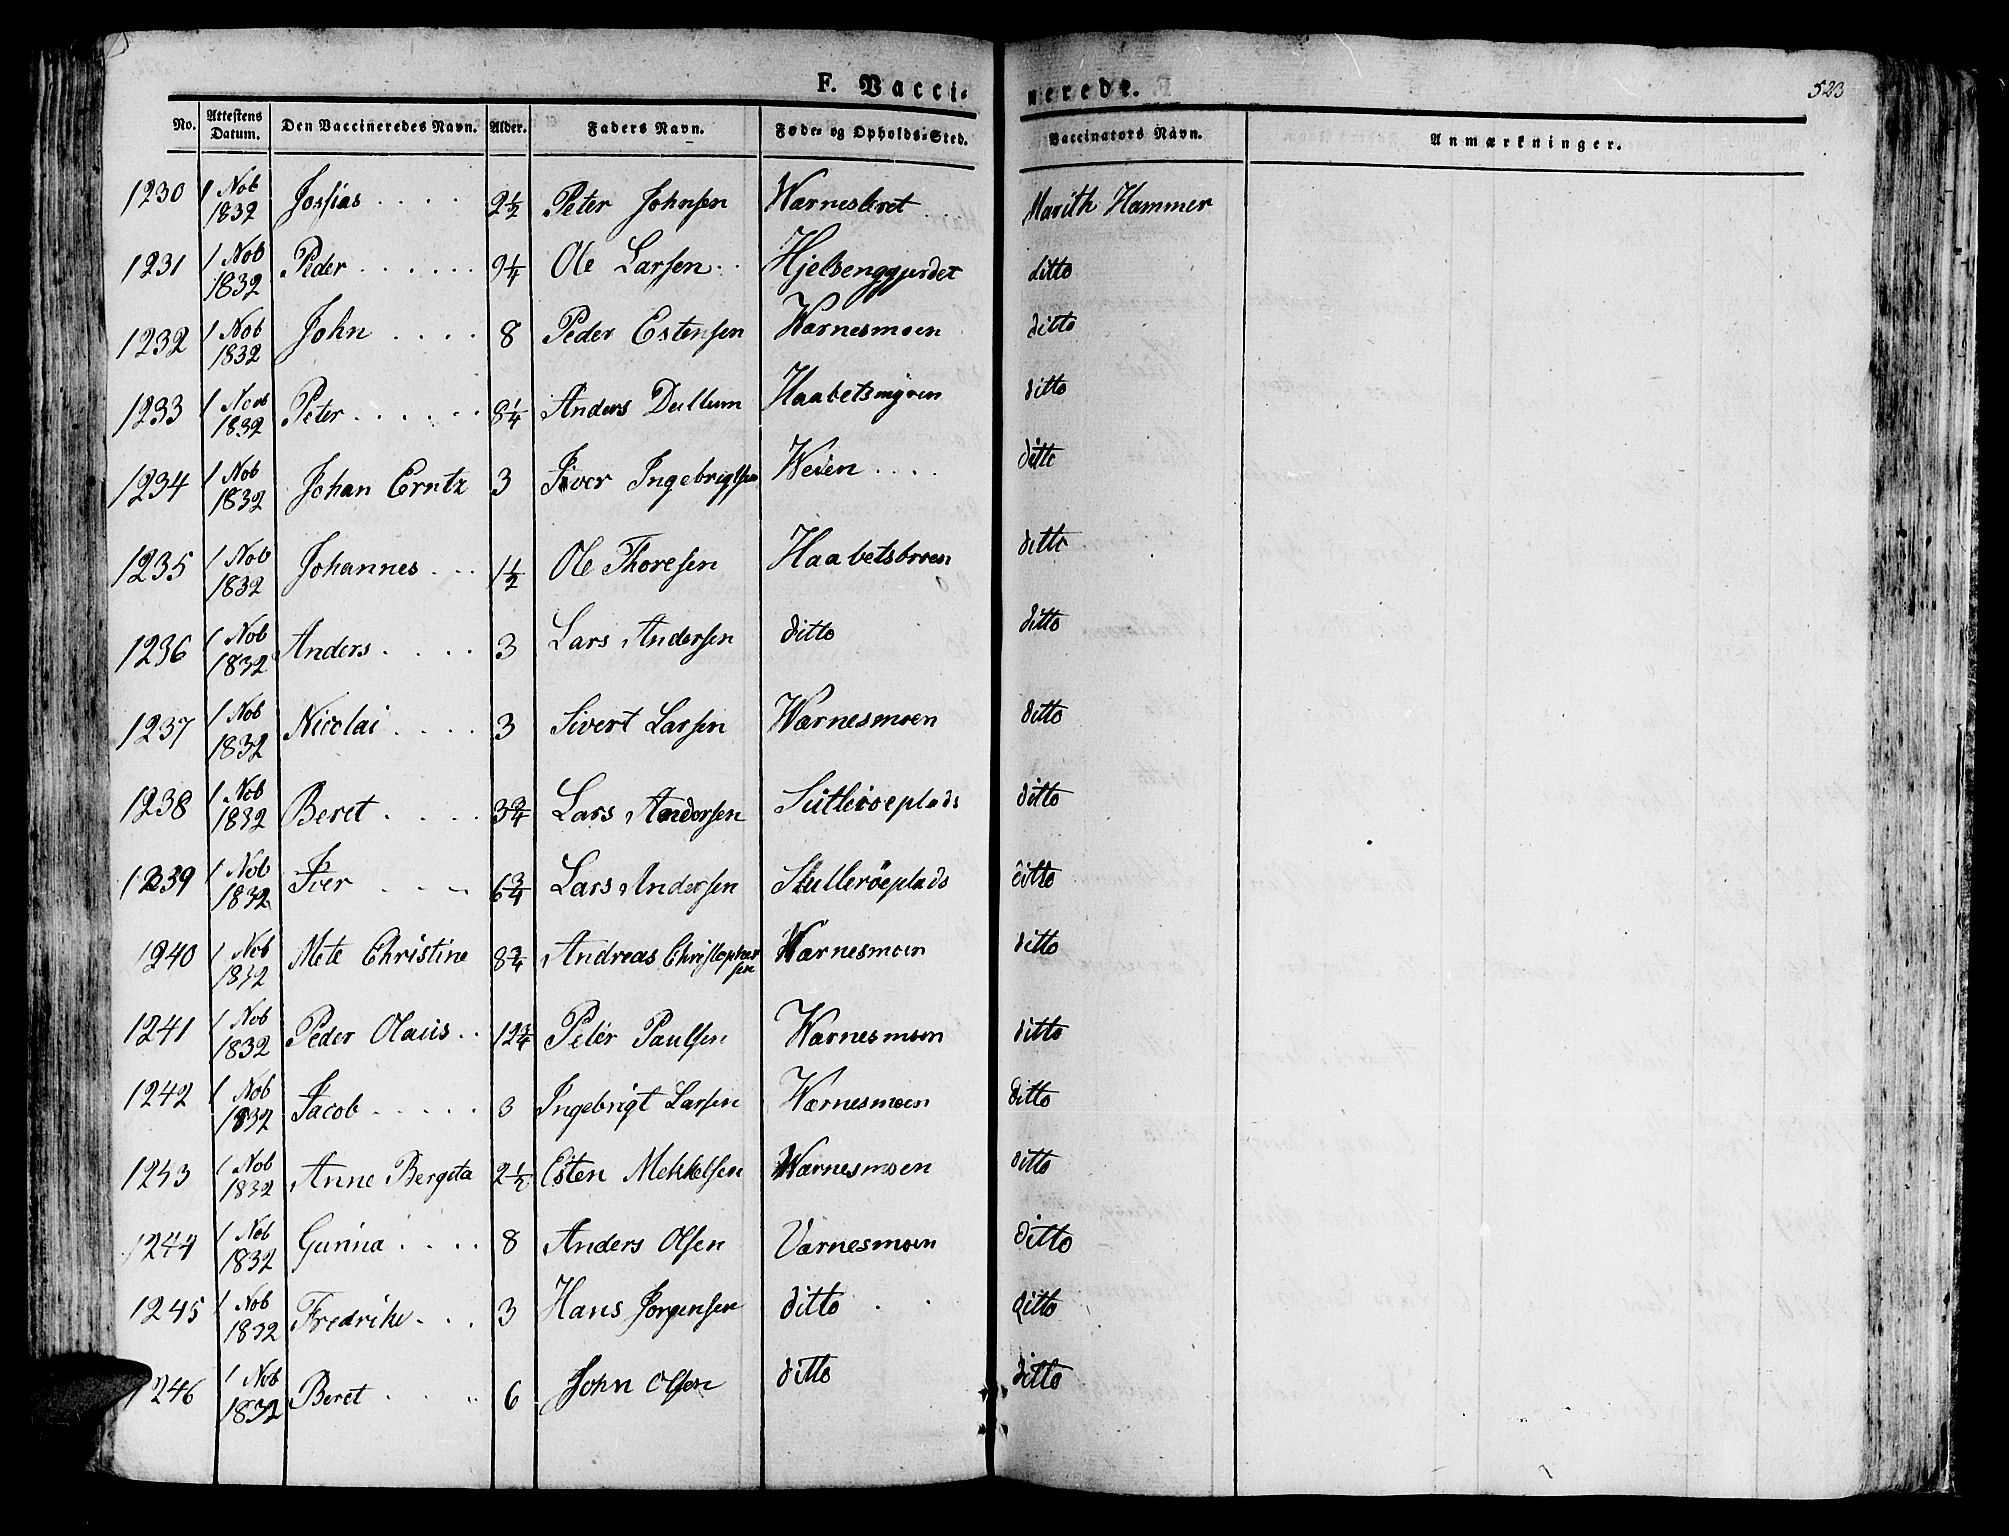 F. Vacci-
nerede.
523
No. Attestens Datum. Den Vaccineredes Navn. Alder. Faders Navn. Føde- og Opholds-Sted. Vaccinators Navn. Anmærkninger.
1230 1 Nob 1832 Jossias .... 2½ Peter Johnsen Marith Hammer
1231 1 Nob 1832 Peder ...... 9¼ Ole Larsen .. ditto
1232 1 Nob 1832 John .... 8 Peder Estensen Wærnesmoen ditto
1233 1 Nob 1832 Peter ...... 8¼ Anders Dullum Haabetsmyren ditto
1234 1 Nob 1832 Johan Erntz 3 Iver Ingebrigtsen Weien .... ditto
1235 1 Nob 1832 Johannes ... 1½ Ole Thoresen ditto
1236 1 Nob 1832 Anders .... 3 Lars Andersen ditto ditto
1237 1 Nob 1832 Nicolai .... 3 Sivert Larsen Wærnesmoen ditto
1238 1 Nob 1832 Beret .... 3¾ Lars Andersen ditto
1239 1 Nob 1832 Iver ... 6¾ Lars Andersen Skulleröeplads ditto
1240 1 Nob 1832 Mete Christine 8¾ Andreas Christophersen Wærnesmoen ditto
1241 1 Nob 1832 Peder Olaus .. 12¾ Peter Paulsen Wærnesmoen ditto
1242 1 Nob 1832 Jacob ..... 3 Ingebrigt Larsen Wærnesmoen ditto
1243 1 Nob 1832 Anne Bergeta 2½ Esten Mekkelsen Wærnesmoen ditto
1244 1 Nob 1832 Gunna .... 8 Anders Olsen Værnesmoen ditto
1245 1 Nob 1832 Fredrike ... 3 Hans Jørgensen ditto .. ditto
1246 1 Nob 1832 Beret .... 6 John Olsen ditto ditto